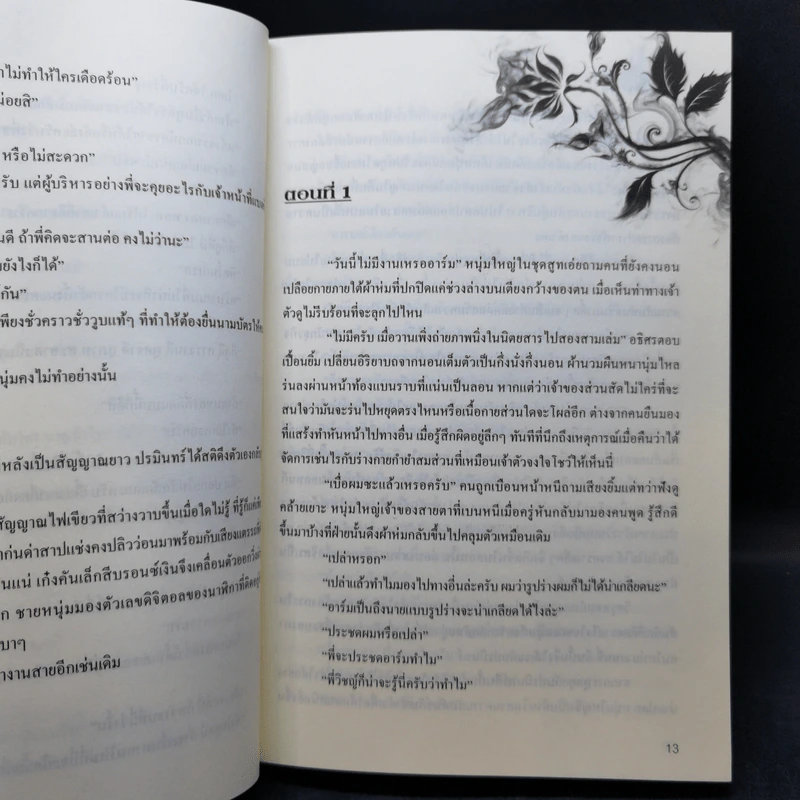 ไม่ทำให้ใครเดือดร้อน”
น่อยสิ”
หรือไม่สะดวก”
รับ แต่ผู้บริหารอย่างพี่จะคุยอะไรกับเจ้าหน้าที่
นดี ถ้าพี่คิดจะสานต่อ คงไม่ว่านะ”
ยังไงก็ได้”
กัน”
พียงชั่วคราวชั่ววูบแท้ๆ ที่ทำให้ต้องยื่นนามบัตรให้
นุ่มคงไม่ทำอย่างนั้น
หลังเป็นสัญญาณยาว ปรมินทร์ได้สติดึงตัวเอง
สัญญาณไฟเขียวที่สว่างวาบขึ้นเมื่อใดไม่รู้ ที่รู้ก็แค่
ก่นด่าสาปแช่งคงปลิวว่อนมาพร้อมกับเสียงแตรรถ
นแน่ เก๋งคันเล็กสีบรอนซ์เงินจึงเคลื่อนตัวออก
ก ชายหนุ่มมองตัวเลขดิจิตอลของนาฬิกาที่ติด
บาๆ
างานสายอีกเช่นเดิม
ตอนที่ 1
“วันนี้ไม่มีงานเหรออาร์ม” หนุ่มใหญ่ในชุดสูทเอ่ยถามคนที่ยังคงนอน
เปลือยกายภายใต้ผ้าห่มที่ปกปิดแค่ช่วงล่างบนเตียงกว้างของตน เมื่อเห็นท่าทางเจ้า
ตัวดูไม่รีบร้อนที่จะลุกไปไหน
“ไม่มีครับ เมื่อวานเพิ่งถ่ายภาพนิ่งในนิตยสารไปสองสามเล่ม” อธิศรตอบ
เปื้อนยิ้ม เปลี่ยนอิริยาบถจากนอนเต็มตัวเป็นกึ่งนั่งกึ่งนอน ผ้านวมผืนหนานุ่มไหล
ร่นลงผ่านหน้าท้องแบนราบที่แน่นเป็นลอน หากแต่ว่าเจ้าของส่วนสัดไม่ใคร่ที่จะ
สนใจว่ามันจะร่นไปหยุดตรงไหนหรือเนื้อกายส่วนใดจะโผล่อีก ต่างจากคนยืนมอง
ที่แสร้งทำหันหน้าไปทางอื่น เมื่อรู้สึกผิดอยู่ลึกๆ ทันทีที่นึกถึงเหตุการณ์เมื่อคืนว่าได้
จัดการเช่นไรกับร่างกายกำยำสมส่วนที่เหมือนเจ้าตัวจงใจโชว์ให้เห็นนี่
“เบื่อผมซะแล้วเหรอครับ” คนถูกเบือนหน้าหนีถามเสียงยิ้มแต่ทว่าฟังดู
คล้ายเยาะ หนุ่มใหญ่เจ้าของสายตาที่เบนหนีเมื่อครู่หันกลับมามองคนพูด รู้สึกดี
ขึ้นมาบ้างที่ฝ่ายนั้นดึงผ้าห่มกลับขึ้นไปคลุมตัวเหมือนเดิม
“เปล่าหรอก”
“เปล่าแล้วทำไมมองไปทางอื่นล่ะครับ ผมว่ารูปร่างผมก็ไม่ได้น่าเกลียดนะ”
“อาร์มเป็นถึงนายแบบรูปร่างจะน่าเกลียดได้ไงล่ะ”
“ประชดผมหรือเปล่า”
“พี่จะประชดอาร์มทำไม”
“พี่วิชญ์ก็น่าจะรู้นี่ครับว่าทำไม”
13